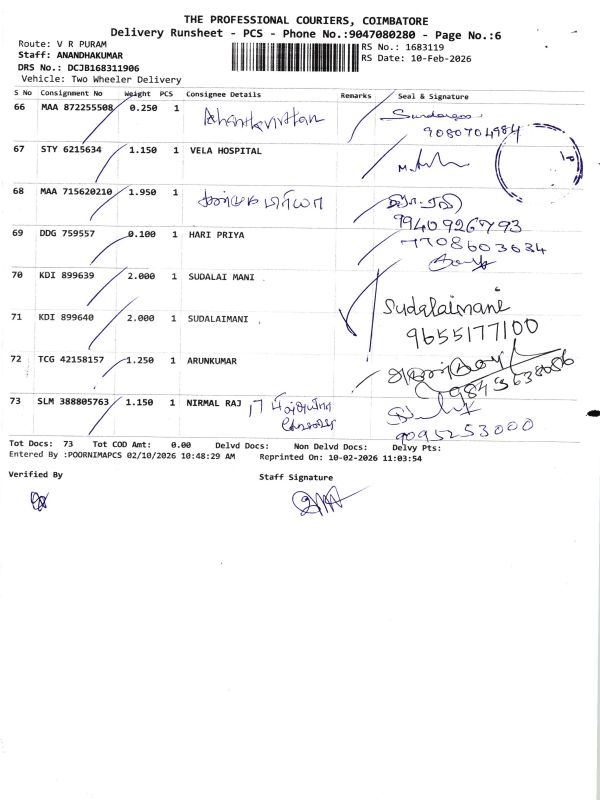 THE PROFESSIONAL COURIERS, COIMBATORE
Delivery Runsheet - PCS - Phone No.:9047080280 - Page No.:6
Route: V R PURAM
RS No.: 1683119
Staff: ANANDHAKUMAR
RS Date: 10-Feb-2026
DRS No.: DCJB168311906
Vehicle: Two Wheeler Delivery
S No Consignment No Weight PCS Consignee Details Remarks Seal & Signature
66 MAA 872255508 0.250 1
9080704984
67 STY 6215634 1.150 1 VELA HOSPITAL
68 MAA 715620210 1.950 1
9940926793
69 DDG 759557 0.100 1 HARI PRIYA
7708603634
70 KDI 899639 2.000 1 SUDALAI MANI
Sudalaimani
71 KDI 899640 2.000 1 SUDALAIMANI
9655177100
72 TCG 42158157 1.250 1 ARUNKUMAR
73 SLM 388805763 1.150 1 NIRMAL RAJ
9095253000
Tot Docs: 73 Tot COD Amt: 0.00 Delvd Docs: Non Delvd Docs: Delvy Pts:
Entered By :POORNIMAPCS 02/10/2026 10:48:29 AM Reprinted On: 10-02-2026 11:03:54
Verified By
Staff Signature